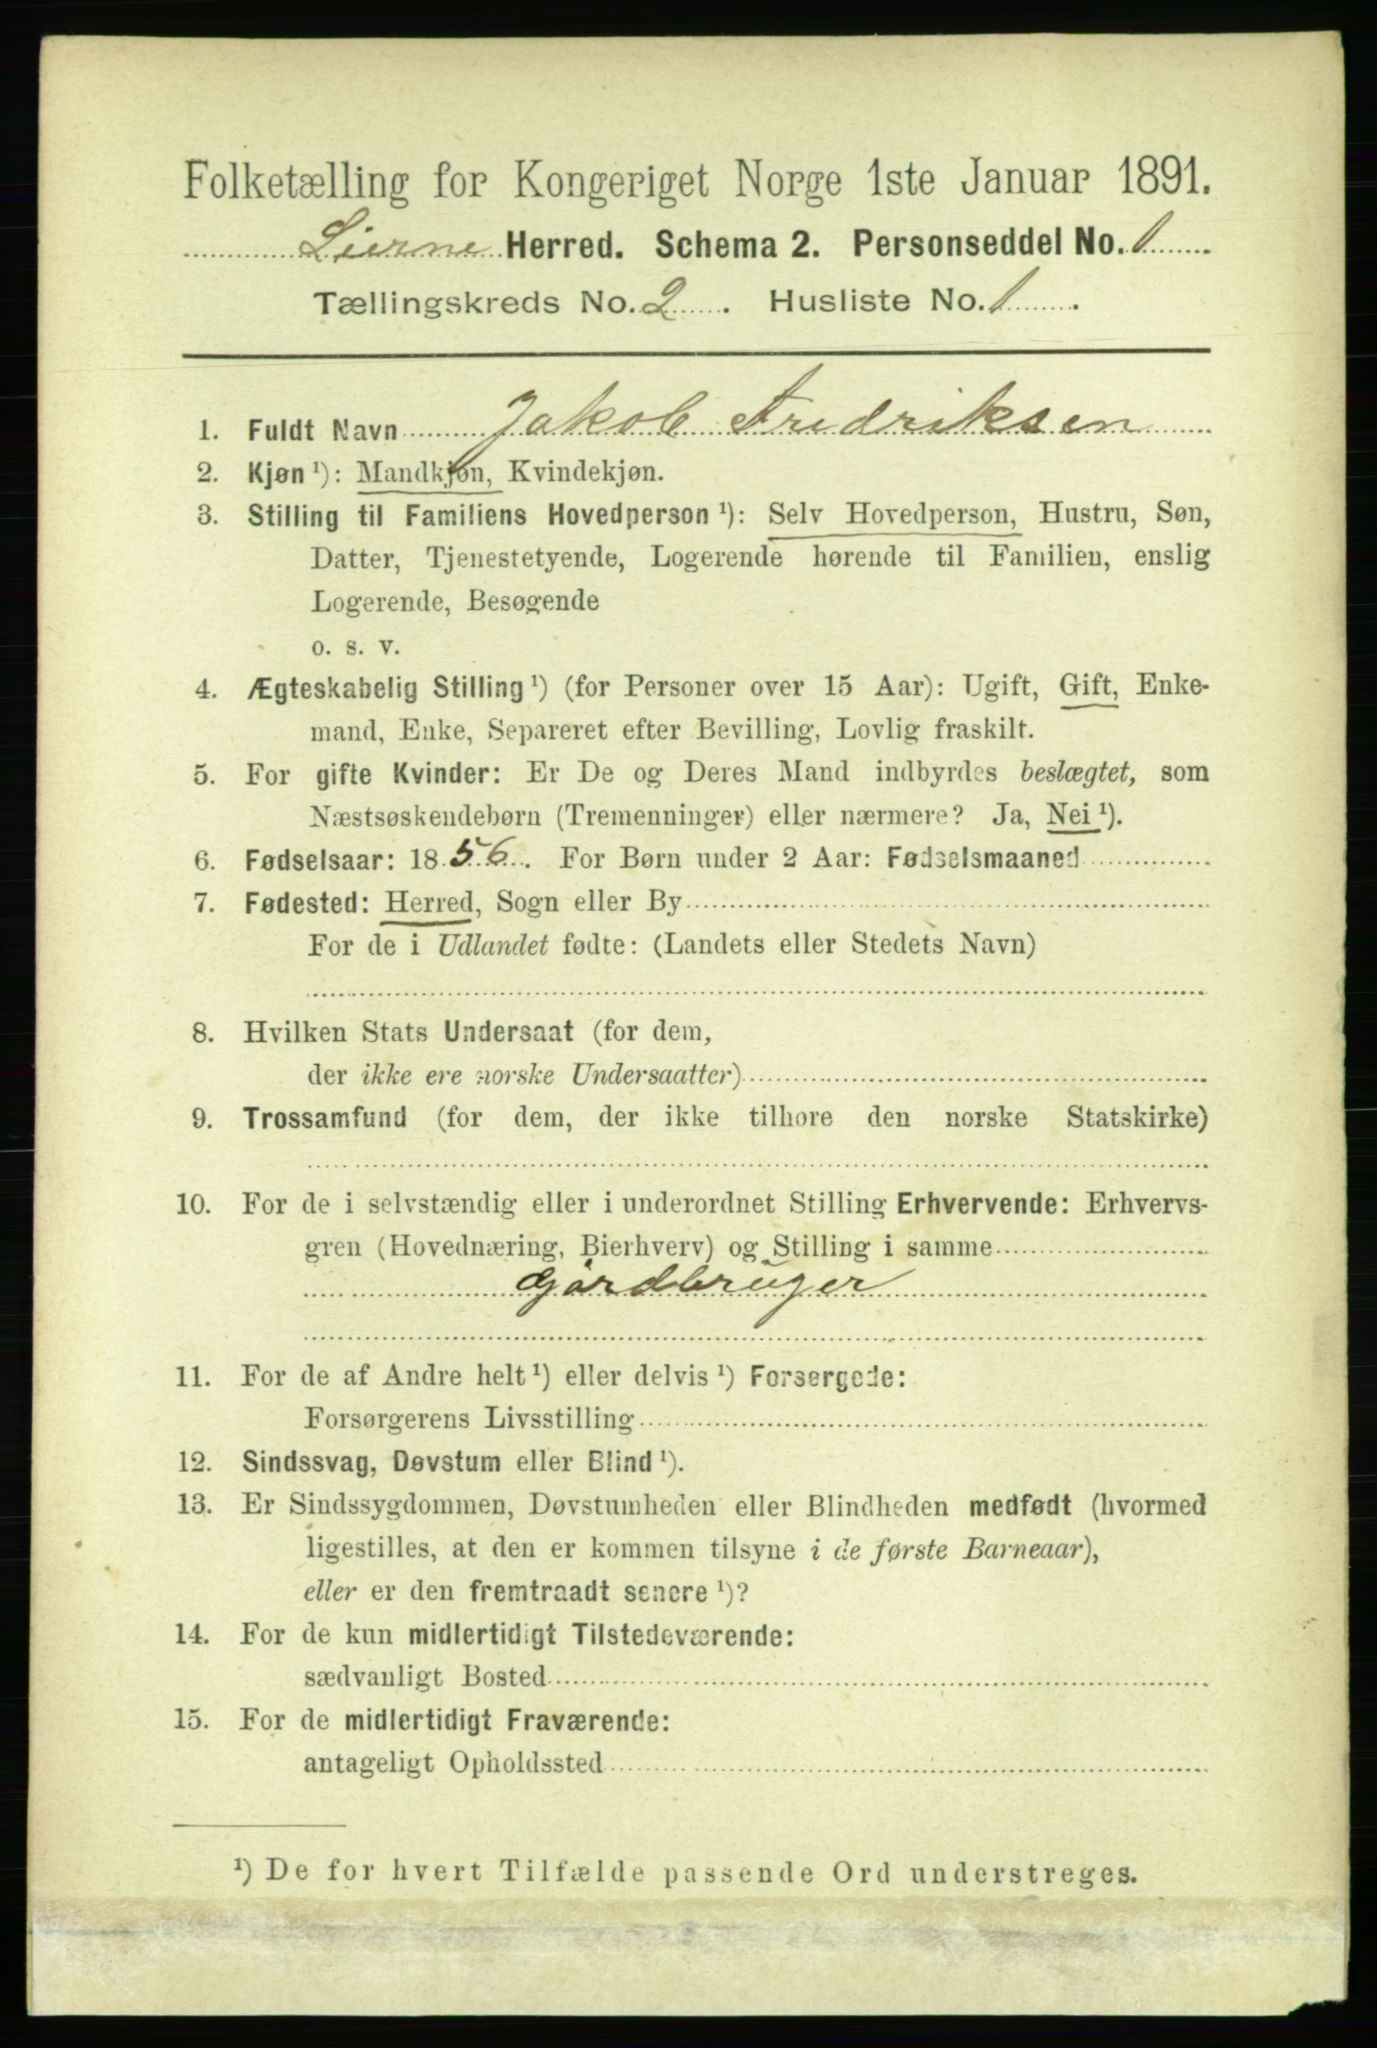 Folketælling for Kongeriget Norge 1ste Januar 1891.
Lierne Herred. Schema 2. Personseddel No. 1
Tællingskreds No. 2. Husliste No. 1.
1. Fuldt Navn Jakob Fredriksen
2. Kjøn ¹): Mandkjøn, Kvindekjøn.
3. Stilling til Familiens Hovedperson ¹): Selv Hovedperson, Hustru, Søn,
Datter, Tjenestetyende, Logerende hørende til Familien, enslig
Logerende, Besøgende
o. s. v.
4. Ægteskabelig Stilling ¹) (for Personer over 15 Aar): Ugift, Gift, Enke-
mand, Enke, Separeret efter Bevilling, Lovlig fraskilt.
5. For gifte Kvinder: Er De og Deres Mand indbyrdes beslægtet, som
Næstsøskendebørn (Tremenninger) eller nærmere? Ja, Nei ¹).
6. Fødselsaar: 1856. For Børn under 2 Aar: Fødselsmaaned
7. Fødested: Herred, Sogn eller By
For de i Udlandet fødte: (Landets eller Stedets Navn)
8. Hvilken Stats Undersaat (for dem,
der ikke ere norske Undersaatter)
9. Trossamfund (for dem, der ikke tilhøre den norske Statskirke)
10. For de i selvstændig eller i underordnet Stilling Erhvervende: Erhvervs-
gren (Hovednæring, Bierhverv) og Stilling i samme
Gårdbruger
11. For de af Andre helt ¹) eller delvis ¹) Forsørgede:
Forsørgerens Livsstilling
12. Sindssvag, Døvstum eller Blind ¹).
13. Er Sindssygdommen, Døvstumheden eller Blindheden medfødt (hvormed
ligestilles, at den er kommen tilsyne i de første Barneaar),
eller er den fremtraadt senere ¹)?
14. For de kun midlertidigt Tilstedeværende:
sædvanligt Bosted
15. For de midlertidigt Fraværende:
antageligt Opholdssted
¹) De for hvert Tilfælde passende Ord understreges.